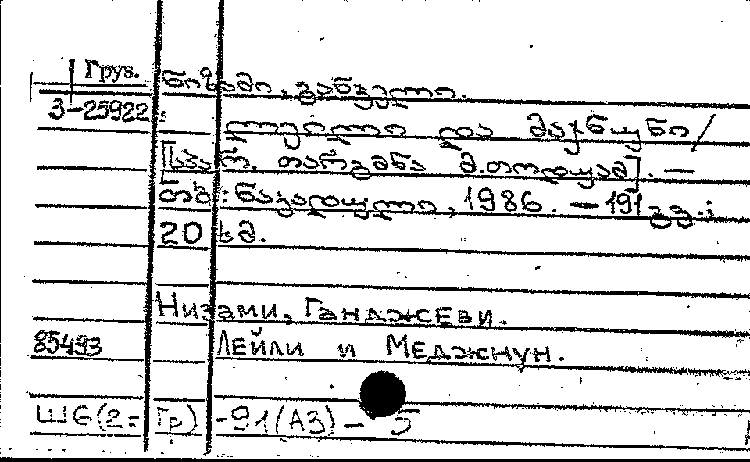 Груз.
ნიზამი, განჯელი.
3-25922
ლეილი და მაჯნუნი/
[სპარ. თარგმნა მ.თოდუამ]. —
თბ.: ნაკადული, 1986. — 191 გვ.;
20 სმ.
Низами, Гянджеви.
85493 Лейли и Меджнун.
Ш6(2=Гр)-91(АЗ)-5